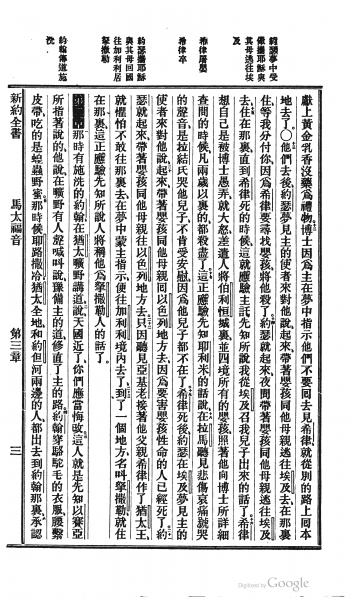 約瑟夢中受
命攜耶穌與
其母逃往埃
及
獻上黃金乳香沒藥爲禮物博士因爲主在夢中指示他們不要囘去見希律就從別的路上囘本
地去了〇他們去後約瑟夢見主的使者來對他說起來帶著嬰孩同他母親逃往埃及去在那裏
住等我分付你因爲希律要尋找嬰孩將他殺了約瑟就起來夜間帶著嬰孩同他母親逃往埃及
去住在那裏直到希律死的時候這就應驗主託先知所說我從埃及召我兒子出來的話了希律
希律屠嬰
想自己是被博士愚弄就大怒差遣人將伯利恆城裏並四境所有的嬰孩照著他向博士所詳細
查問的時候凡兩歲以裏的都殺盡了這正應驗先知耶利米的話說在拉馬聽見悲傷哀痛號哭
希律卒
的聲音是拉結哭他兒子不肯受安慰因爲他兒子都不在了希律死後約瑟在埃及夢見主的
約瑟攜耶穌
與其母囘國
往加利利居
拏撒勒
使者來對他說起來帶著嬰孩同他母親囘以色列地方去因爲要害嬰孩性命的人已經死了約
瑟就起來帶著嬰孩同他母親往以色列地方去只因聽見亞基老接著他父親希律作了猶太王
就懼怕不敢往那裏去在夢中蒙主指示便往加利利境內去了到了一個地方名叫拏撒勒就住
在那裏這正應驗先知所說人將稱他爲拏撒勒人的話了
約翰傳道施
洗
那時有施洗的約翰在猶太曠野講道說天國近了你們應當悔改這人就是先知以賽亞
所指著說的他說在曠野有人聲喊叫說豫備主的道修直了主的路約翰穿駱駝毛的衣服腰繫
皮帶吃的是蝗蟲野蜜那時候耶路撒冷猶太全地和約但河兩邊的人都出去到約翰那裏承認
新約全書 馬太福音 第三章 三
Digitized by Google